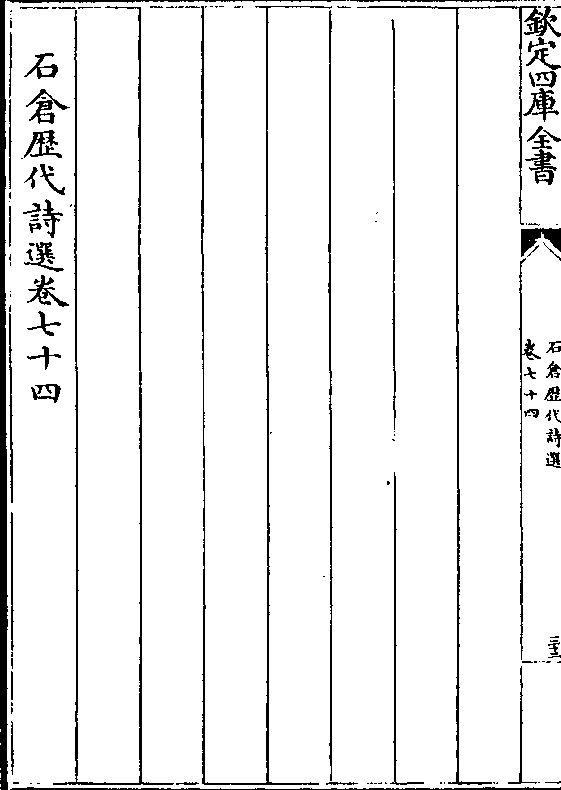 欽定四庫全書
石倉歷代詩選
卷七十四
三十三
石倉歷代詩選卷七十四